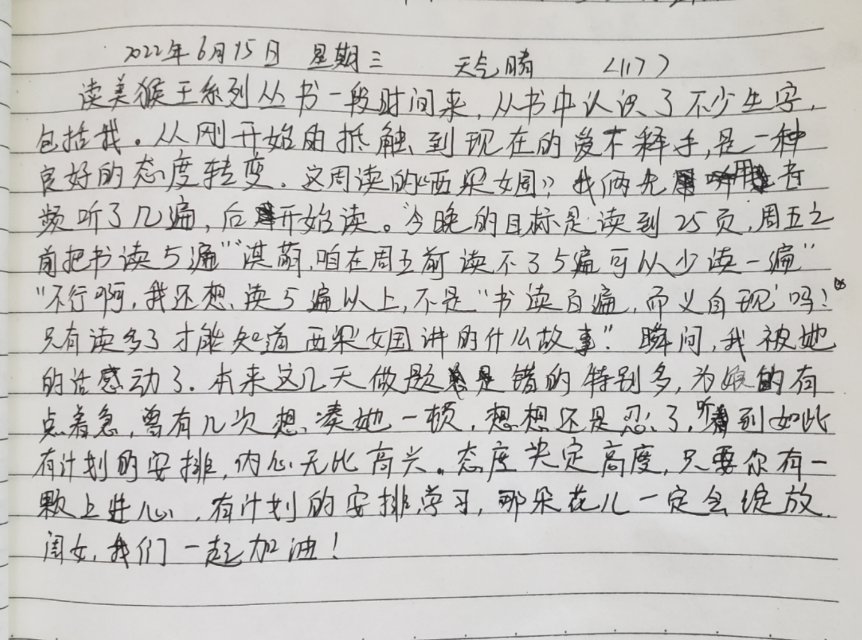 2022年6月15日 星期三 天气晴 <117>
读美猴王系列丛书一段时间来,从书中认识了不少生字,
包括我。从刚开始的抵触,到现在的爱不释手,是一种
良好的态度转变。这周读的《西梁女国》,我俩先用音
频听了几遍,后开始读。"今晚的目标是读到25页,周五之
前把书读5遍""淇萌,咱在周五前读不了5遍可以少读一遍"
"不行啊,我还想读5遍以上,不是"书读百遍,而义自现"吗?
只有读多了才能知道西梁女国讲的什么故事"。瞬间,我被她
的话感动了。本来这几天做题总是错的特别多,为娘的有
点着急,曾有几次想凑她一顿,想想还是忍了,听到如此
有计划的安排,内心无比高兴。态度决定高度,只要你有一
颗上进心,有计划的安排学习,那朵花儿一定会绽放
闺女,我们一起加油!